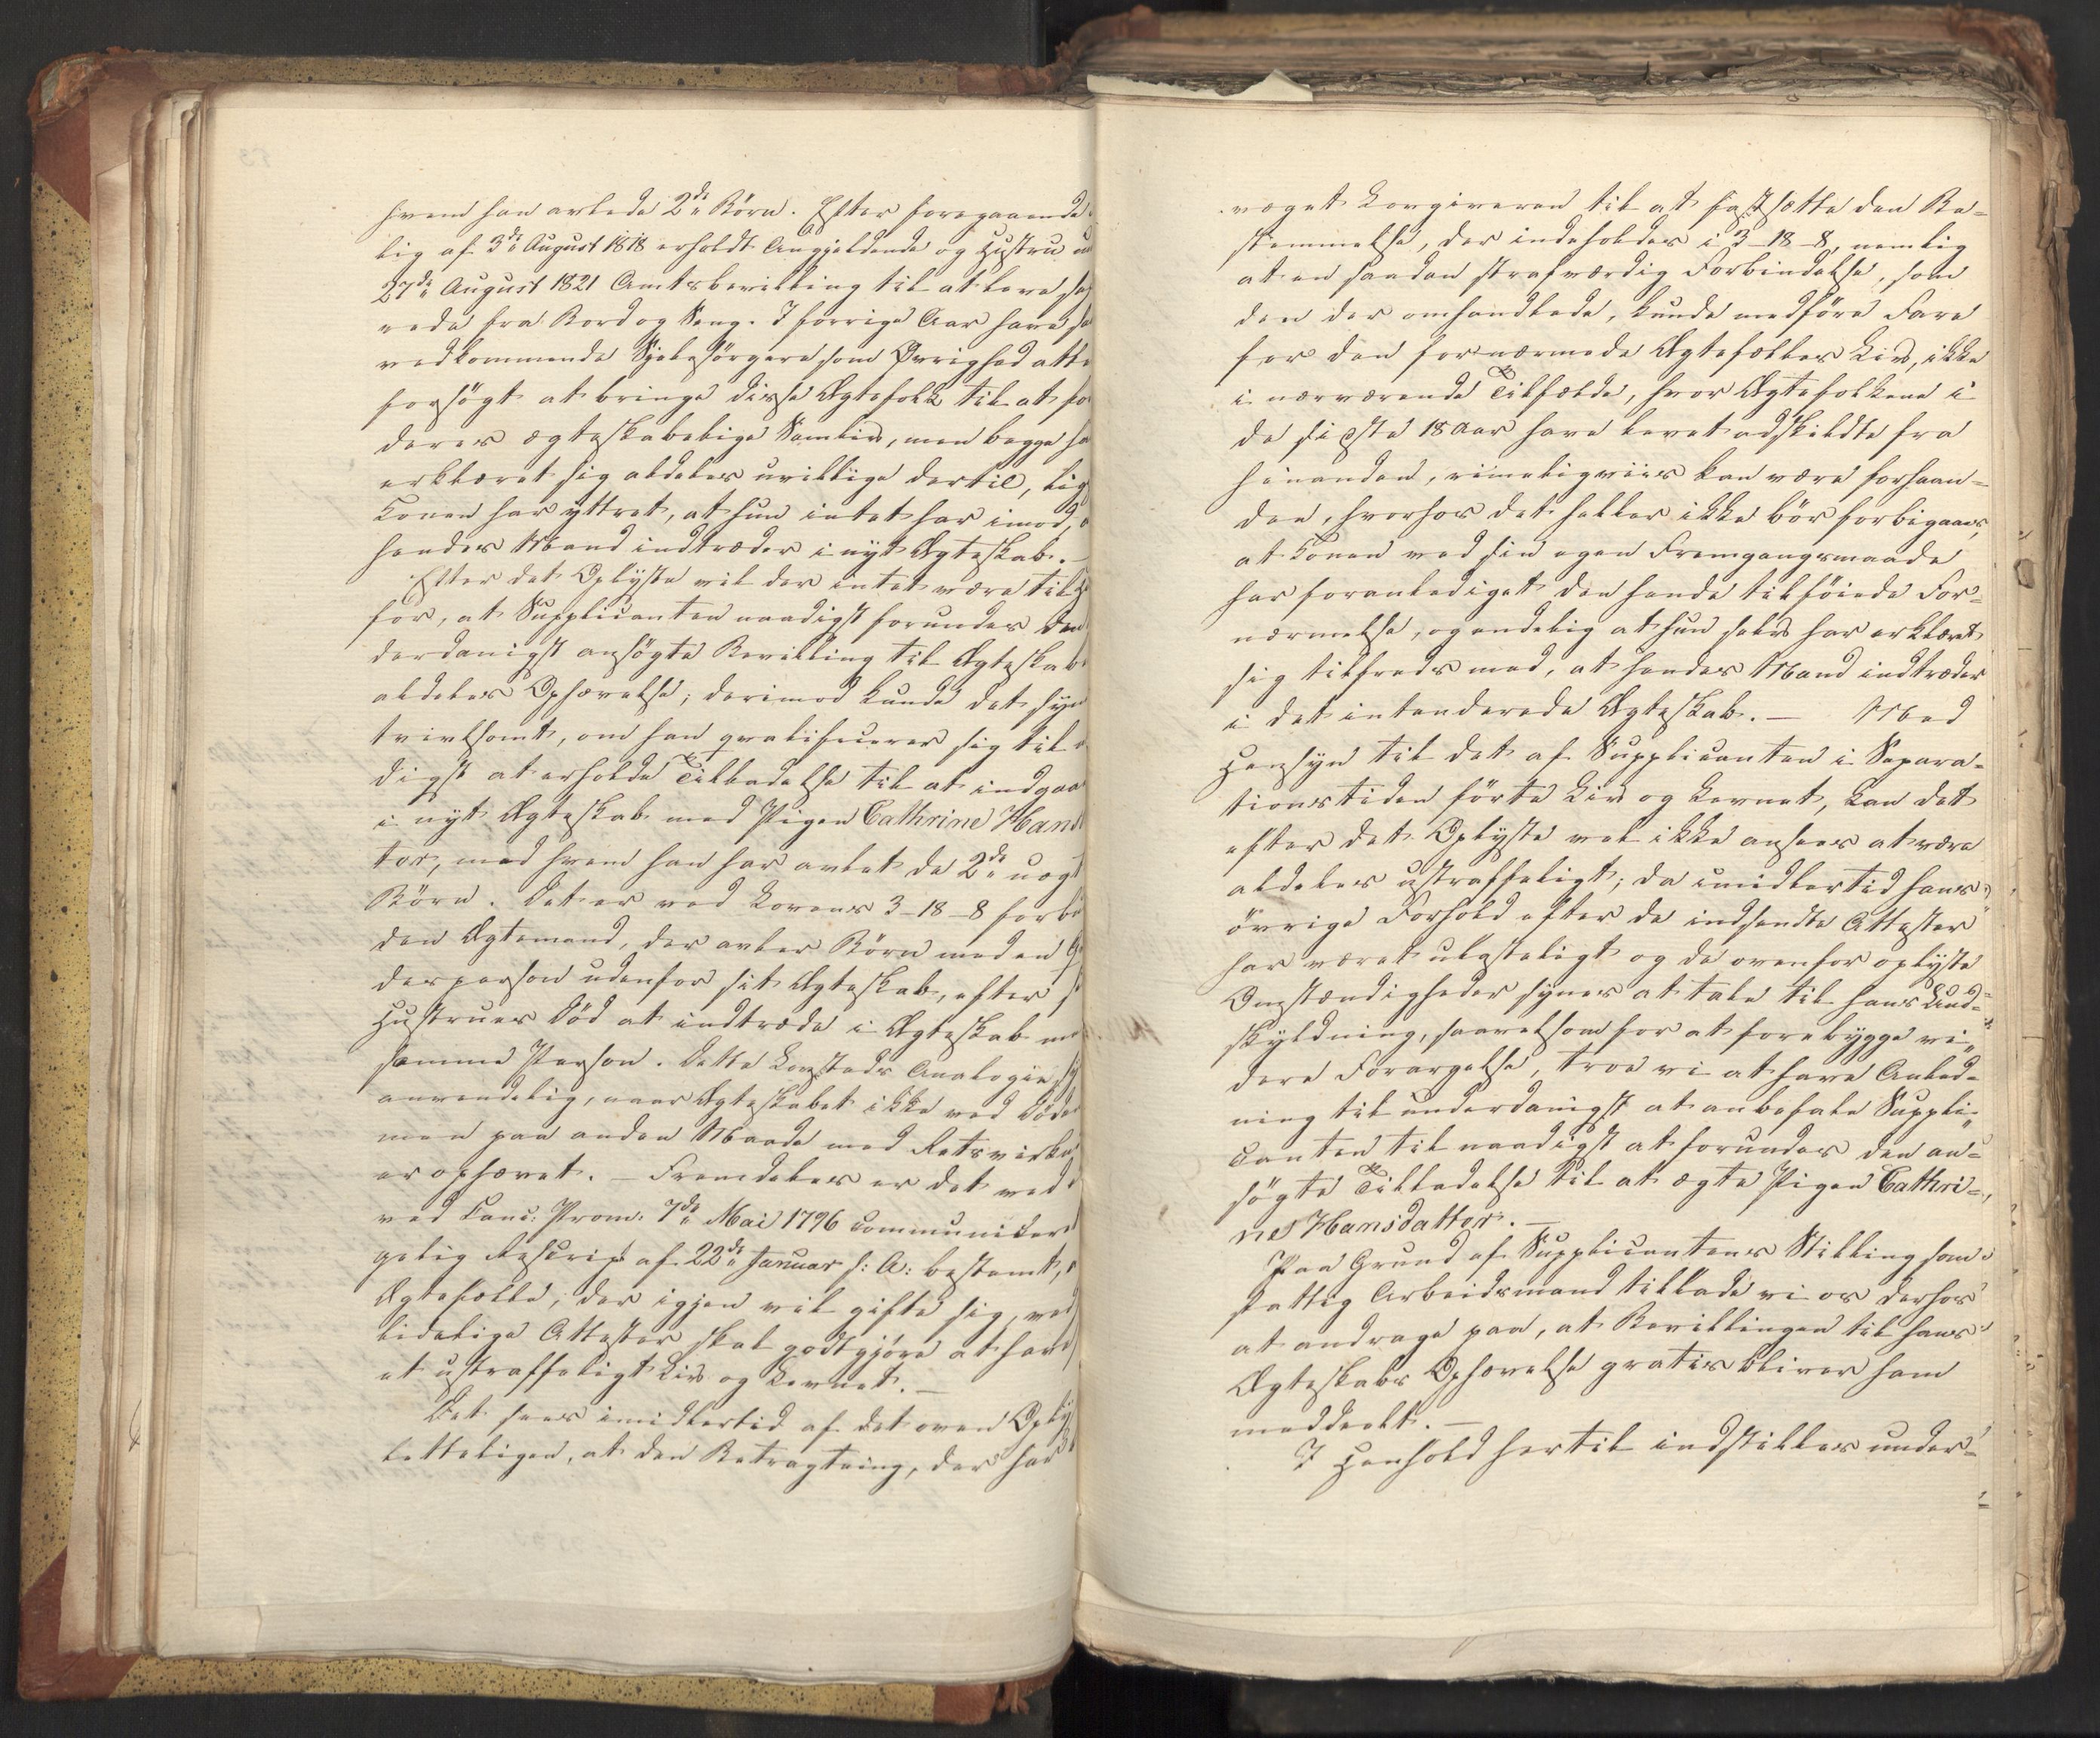 hvem han avlede 2de Børn. Efter foregaaende
lig af 3die August 1818 erholdt Angjeldende og Hustru
27de August 1821 Amtsbevilling til at leve
rede fra Bord og Seng. I forrige Aar have
vedkommende Sjelesörgere som Øvrighed atter
forsögt at bringe disse Ægtefolk til at
deres ægteskabelige Samliv, men begge
erklæret sig aldeles uvillige dertil,
Konen har yttret, at hun intet har imod,
hendes Mand indtræder i nyt Ægteskab. —
Efter det Oplyste vil der intet være til
for, at Supplicanten naadigst forundes den
derdanigst ansögte Bevilling til Ægteskabets
aldeles Ophævelse; derimod kunde det
tvivlsomt, om han qvalificerer sig til
digst at erholde Tilladelse til at indgaae
i nyt Ægteskab med Pigen Cathrine Hans
tter, med hvem han har avlet de 2de uægte
Börn. Det er ved Lovens 3-18-8
den Ægtemand, der avler Börn med en
desperson udenfor sit Ægteskab, efter
Hustrues Död at indtræde i Ægteskab
samme Person. Dette Lovsteds Analogie
anvendelig, naar Ægteskabet ikke ved Döden
men paa anden Maade med Retsvirkning
er ophævet. — Fremdeles er det ved
ved Canc: Prom: 7de Mai 1796 communiceret
gelig Rescript af 22de Januar s: A: bestemt,
Ægtefælle, der igjen vil gifte sig, ved
lidelige Attester skal godtgjöre at have
et ustraffeligt Liv og Levnet. —
Det sees imidlertid af det oven
letteligen, at den Betragtning, der har
væget Lovgiveren til at fastsætte den Be=
stemmelse, der indeholdes i 3-18-8, nemlig
at en saadan strafværdig Forbindelse, som
den der omhandlede, kunde medföre Fare
for den fornærmede Ægtefælles Liv, ikke
i nærværende Tilfælde, hvor Ægtefolkene i
de sidste 18 Aar have levet adskildte fra
hinanden, rimeligviis kan være forhaan=
den, hvorhos det heller ikke bör forbigaaes,
at Konen ved sin egen Fremgangsmaade
har foranlediget den hende tilföiede For=
nærmelse, og endelig at hun selv har erklæret
sig tilfreds med, at hendes Mand indtræder
i det intenderede Ægteskab. — Med
Hensyn til det af Supplicanten i Separa=
tionstiden förte Liv og Levnet, kan det
efter det Oplyste vel ikke ansees at være
aldeles ustraffeligt; da imidlertid hans
övrige Forhold efter de indsendte Attester
har været ulasteligt og de ovenfor oplyste
Omstændigheder synes at tale til hans Und=
skyldning, saavelsom for at forebygge vi=
dere Forargelse, troe vi at have Anled=
ning til underdanigst at anbefale Suppli=
canten til naadigst at forundes den an=
sögte Tilladelse til at ægte Pigen Cathri=
ne Hansdatter. —
Paa Grund af Supplicantens Stilling som
fattig Arbeidsmand tillade vi os derhos
at andrage paa, at Bevillingen til hans
Ægteskabs Ophævelse gratis bliver ham
meddeelt. —
I Henhold hertil indstilles under=